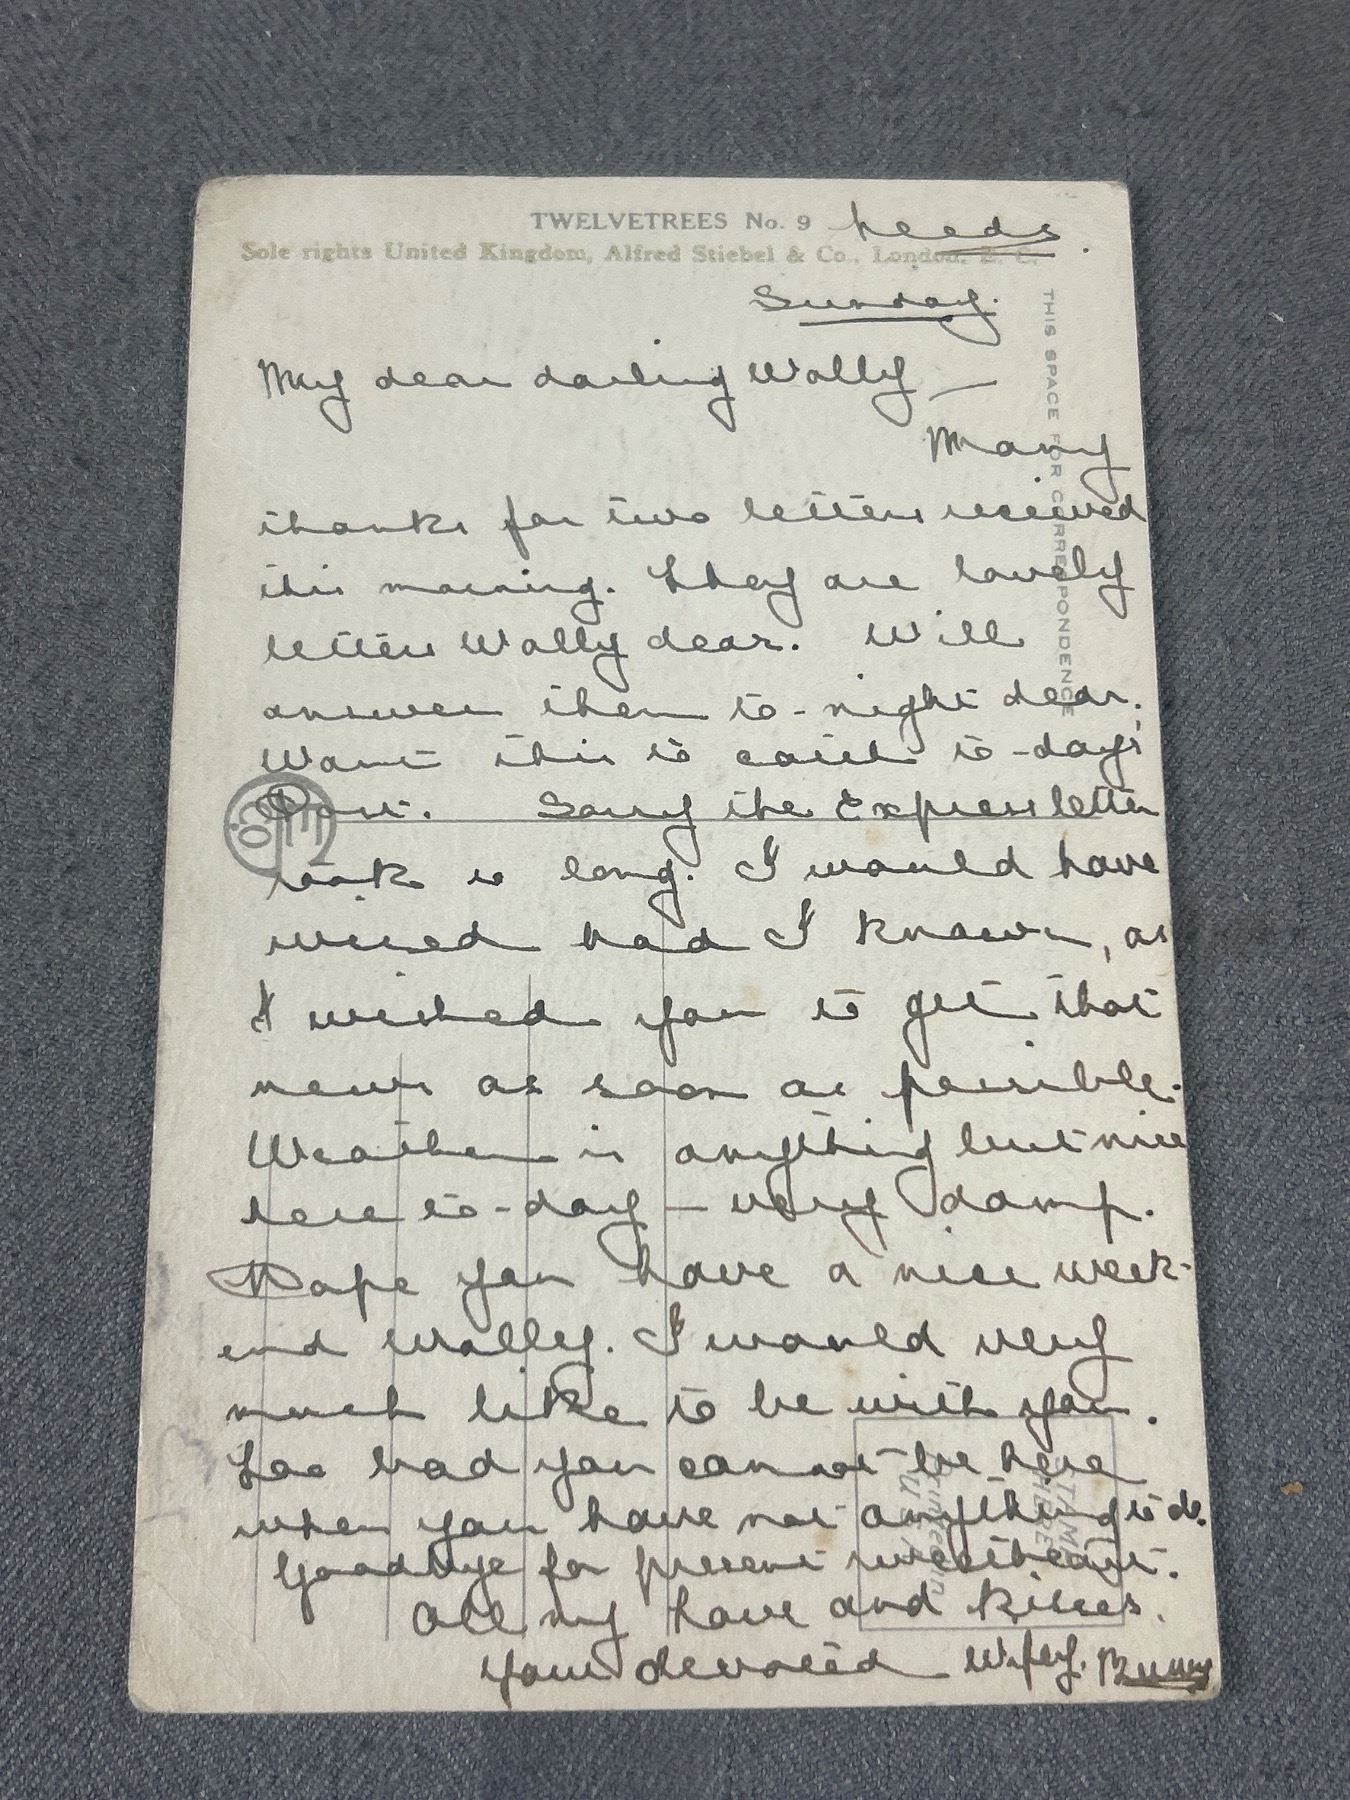 TWELVETREES No. 9 Leeds.
Sole rights United Kingdom, Alfred Stiebel & Co., London, E. C.
Sunday.
My dear darling Wally —
Many
thanks for two letters received
this morning. They are lovely
letters Wally dear. Will
answer them to-night dear.
Want this to catch to-days'
Post. Sorry the Express letter
took so long. I would have
wired had I known, as
I wished you to get that
news as soon as possible.
Weather is anything but nice
here to-day — very damp.
Hope you have a nice week-
end Wally. I would very
much like to be with you.
Too bad you cannot be here
when you have not anything to do.
Goodbye for present sweetheart.
All my love and kisses.
Your devoted Wifey. Bunny
THIS SPACE FOR CORRESPONDENCE
STAMP
HERE
Printed in
U S A